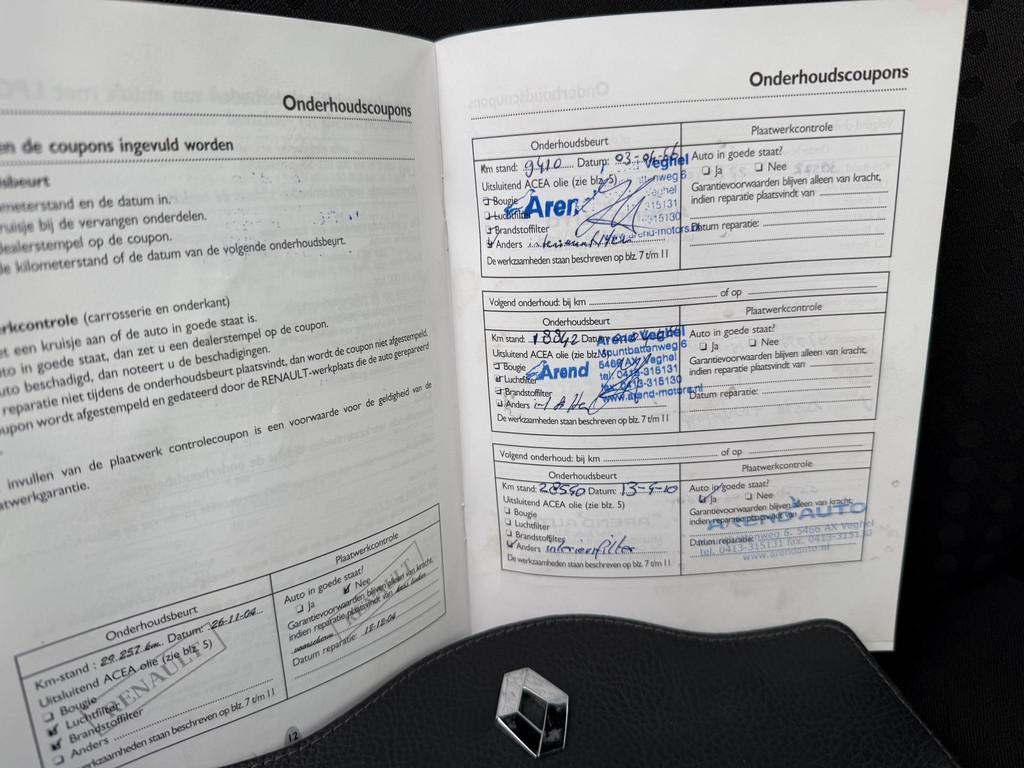 Onderhoudscoupons
en de coupons ingevuld worden
meterstand en de datum in.
ruisje bij de vervangen onderdelen.
dealerstempel op de coupon.
de kilometerstand of de datum van de volgende onderhoudsbeurt.
rkcontrole (carrosserie en onderkant)
et een kruisje aan of de auto in goede staat is.
uto in goede staat, dan zet u een dealerstempel op de coupon.
uto beschadigd, dan noteert u de beschadigingen.
reparatie niet tijdens de onderhoudsbeurt plaatsvindt, dan wordt de coupon niet afgestempeld.
upon wordt afgestempeld en gedateerd door de RENAULT-werkplaats die de auto gerepareerd
invullen van de plaatwerk controlecoupon is een voorwaarde voor de geldigheid van de
atwerkgarantie.
Onderhoudsbeurt
Km-stand : 29.257 km. Datum: 26-11-04
Uitsluitend ACEA olie (zie blz. 5)
Bougie
Luchtfilter
Brandstoffilter
Anders
rkzaamheden staan beschreven op blz. 7 t/m 11
RENAULT
Plaatwerkcontrole
Auto in goede staat?
Ja Nee
Garantievoorwaarden blijven alleen van kracht,
indien reparatie plaatsvindt van
Datum reparatie: 15-12-04
RENAULT
12
Onderhoudscoupons
Onderhoudsbeurt
Km stand: 9410 Datum: 03-04
Uitsluitend ACEA olie (zie blz. 5)
Bougie
Luchtfilter
Brandstoffilter
Anders interieurfilter
De werkzaamheden staan beschreven op blz. 7 t/m 11
Arend
Veghel
nweg 6
Veghel
315131
-315130
arend-motors.nl
Plaatwerkcontrole
Auto in goede staat?
Ja Nee
Garantievoorwaarden blijven alleen van kracht,
indien reparatie plaatsvindt van
Datum reparatie:
Volgend onderhoud: bij km of op
Onderhoudsbeurt
Km stand: 18842 Datum
Uitsluitend ACEA olie (zie blz. 5)
Bougie
Luchtfilter
Brandstoffilter
Anders
De werkzaamheden staan beschreven op blz. 7 t/m 11
Arend
Arend Veghel
Mountbattenweg 6
5466 AX Veghel
tel. 0413-315131
fax. 0413-315130
www.arend-motors.nl
Plaatwerkcontrole
Auto in goede staat?
Ja Nee
Garantievoorwaarden blijven alleen van kracht,
indien reparatie plaatsvindt van
Datum reparatie:
Volgend onderhoud: bij km of op
Onderhoudsbeurt
Km stand: 28590 Datum: 13-4-10
Uitsluitend ACEA olie (zie blz. 5)
Bougie
Luchtfilter
Brandstoffilter
Anders interieurfilter
De werkzaamheden staan beschreven op blz. 7 t/m 11
Plaatwerkcontrole
Auto in goede staat?
Ja Nee
Garantievoorwaarden blijven alleen van kracht,
indien reparatie plaatsvindt van
Datum reparatie:
AREND AUTO
nweg 6, 5466 AX Veghel
tel. 0413-315131 fax. 0413-315130
www.arendauto.nl